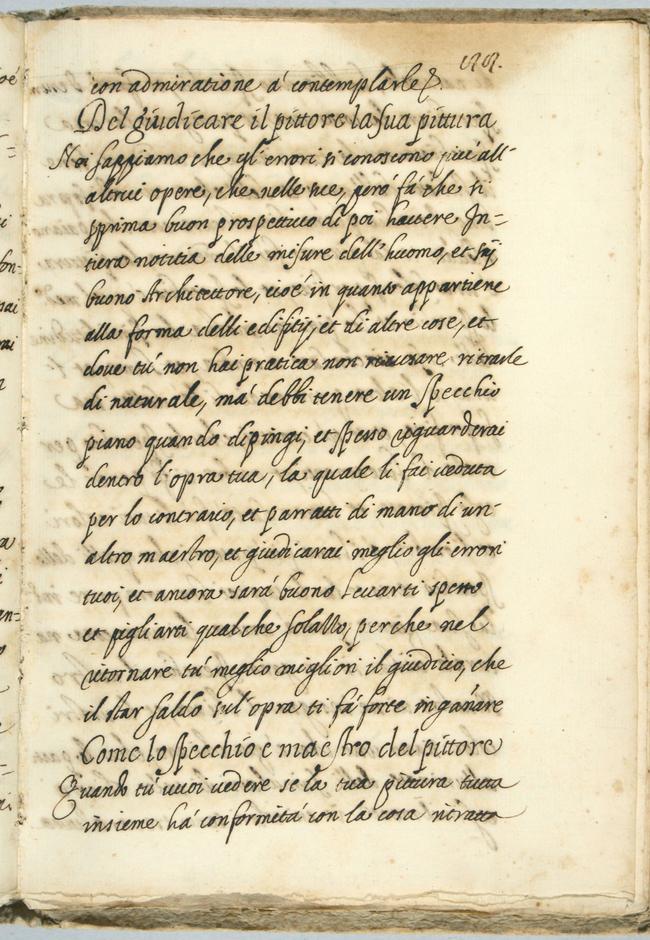 con admiratione a' contemplarle
Del giudicare il pittore la sua pittura
Noi sappiamo che gli errori si conoscono piu' all'
altrui opere, che nelle sue, pero' fa che si
sprima buon prospettivo di poi havere In=
tiera notitia delle misure dell'huomo, et sij
buono Architettore, cioe' in quanto appartiene
alla forma delli edifitij, et di altre cose, et
dove tu' non hai pratica non ricusare ritrarle
di naturale, ma' debbi tenere un specchio
piano quando dipingi, et spesso riguarderai
dentro l'opra tua, la quale li fai veduta
per lo contrario, et parratti di mano di un'
altro maestro, et giudicarai meglio gli errori
tuoi, et ancora sara' buono levarti spesso
et pigliarti qualche solazzo, perche nel
ritornare tu' meglio migliori il giudicio, che
il star saldo sul'opra ti fa' forte ingañare
Come lo specchio e maestro del pittore
Quando tu' vuoi vedere se la tua pittura tutta
insieme ha' conformita' con la cosa ritratta